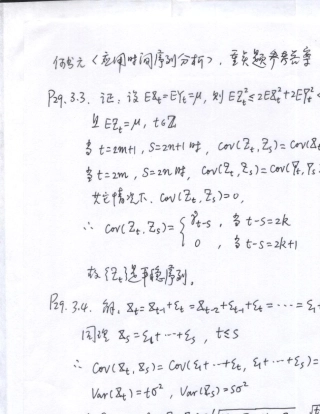 何书元《应用时间序列分析》, 重点题参考答案
P29. 3.3. 证: 设 EXt=EYt=μ, 则 EZt²≤2EXt²+2EYt²<
且 EZt=μ, t∈Z
当 t=2m+1, S=2n+1 时, Cov(Zt, Zs)=Cov(Xt
当 t=2m, S=2n 时, Cov(Zt, Zs)=Cov(Yt, Ys
其它情况下, Cov(Zt, Zs)=0,
∴ Cov(Zt, Zs)= { γt-s , 当 t-s=2k
0 , 当 t-s=2k+1
故{Zt}是平稳序列.
P29. 3.4. 解: Xt=Xt-1+εt=Xt-2+εt-1+εt=……=ε1
同理 Xs=ε1+…+εs, t≤s
∴ Cov(Xt, Xs)=Cov(ε1+…+εt, ε1+…+εs)=
Var(Xt)=tσ², Var(Xs)=sσ²